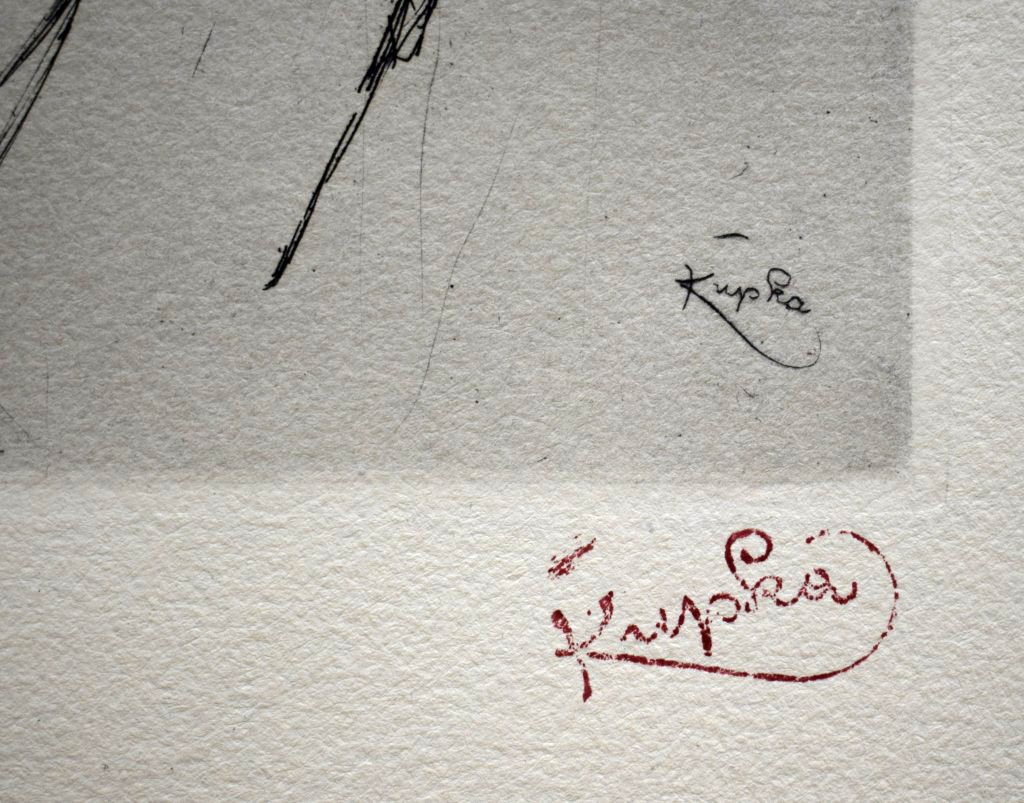 Kupka
Kupka